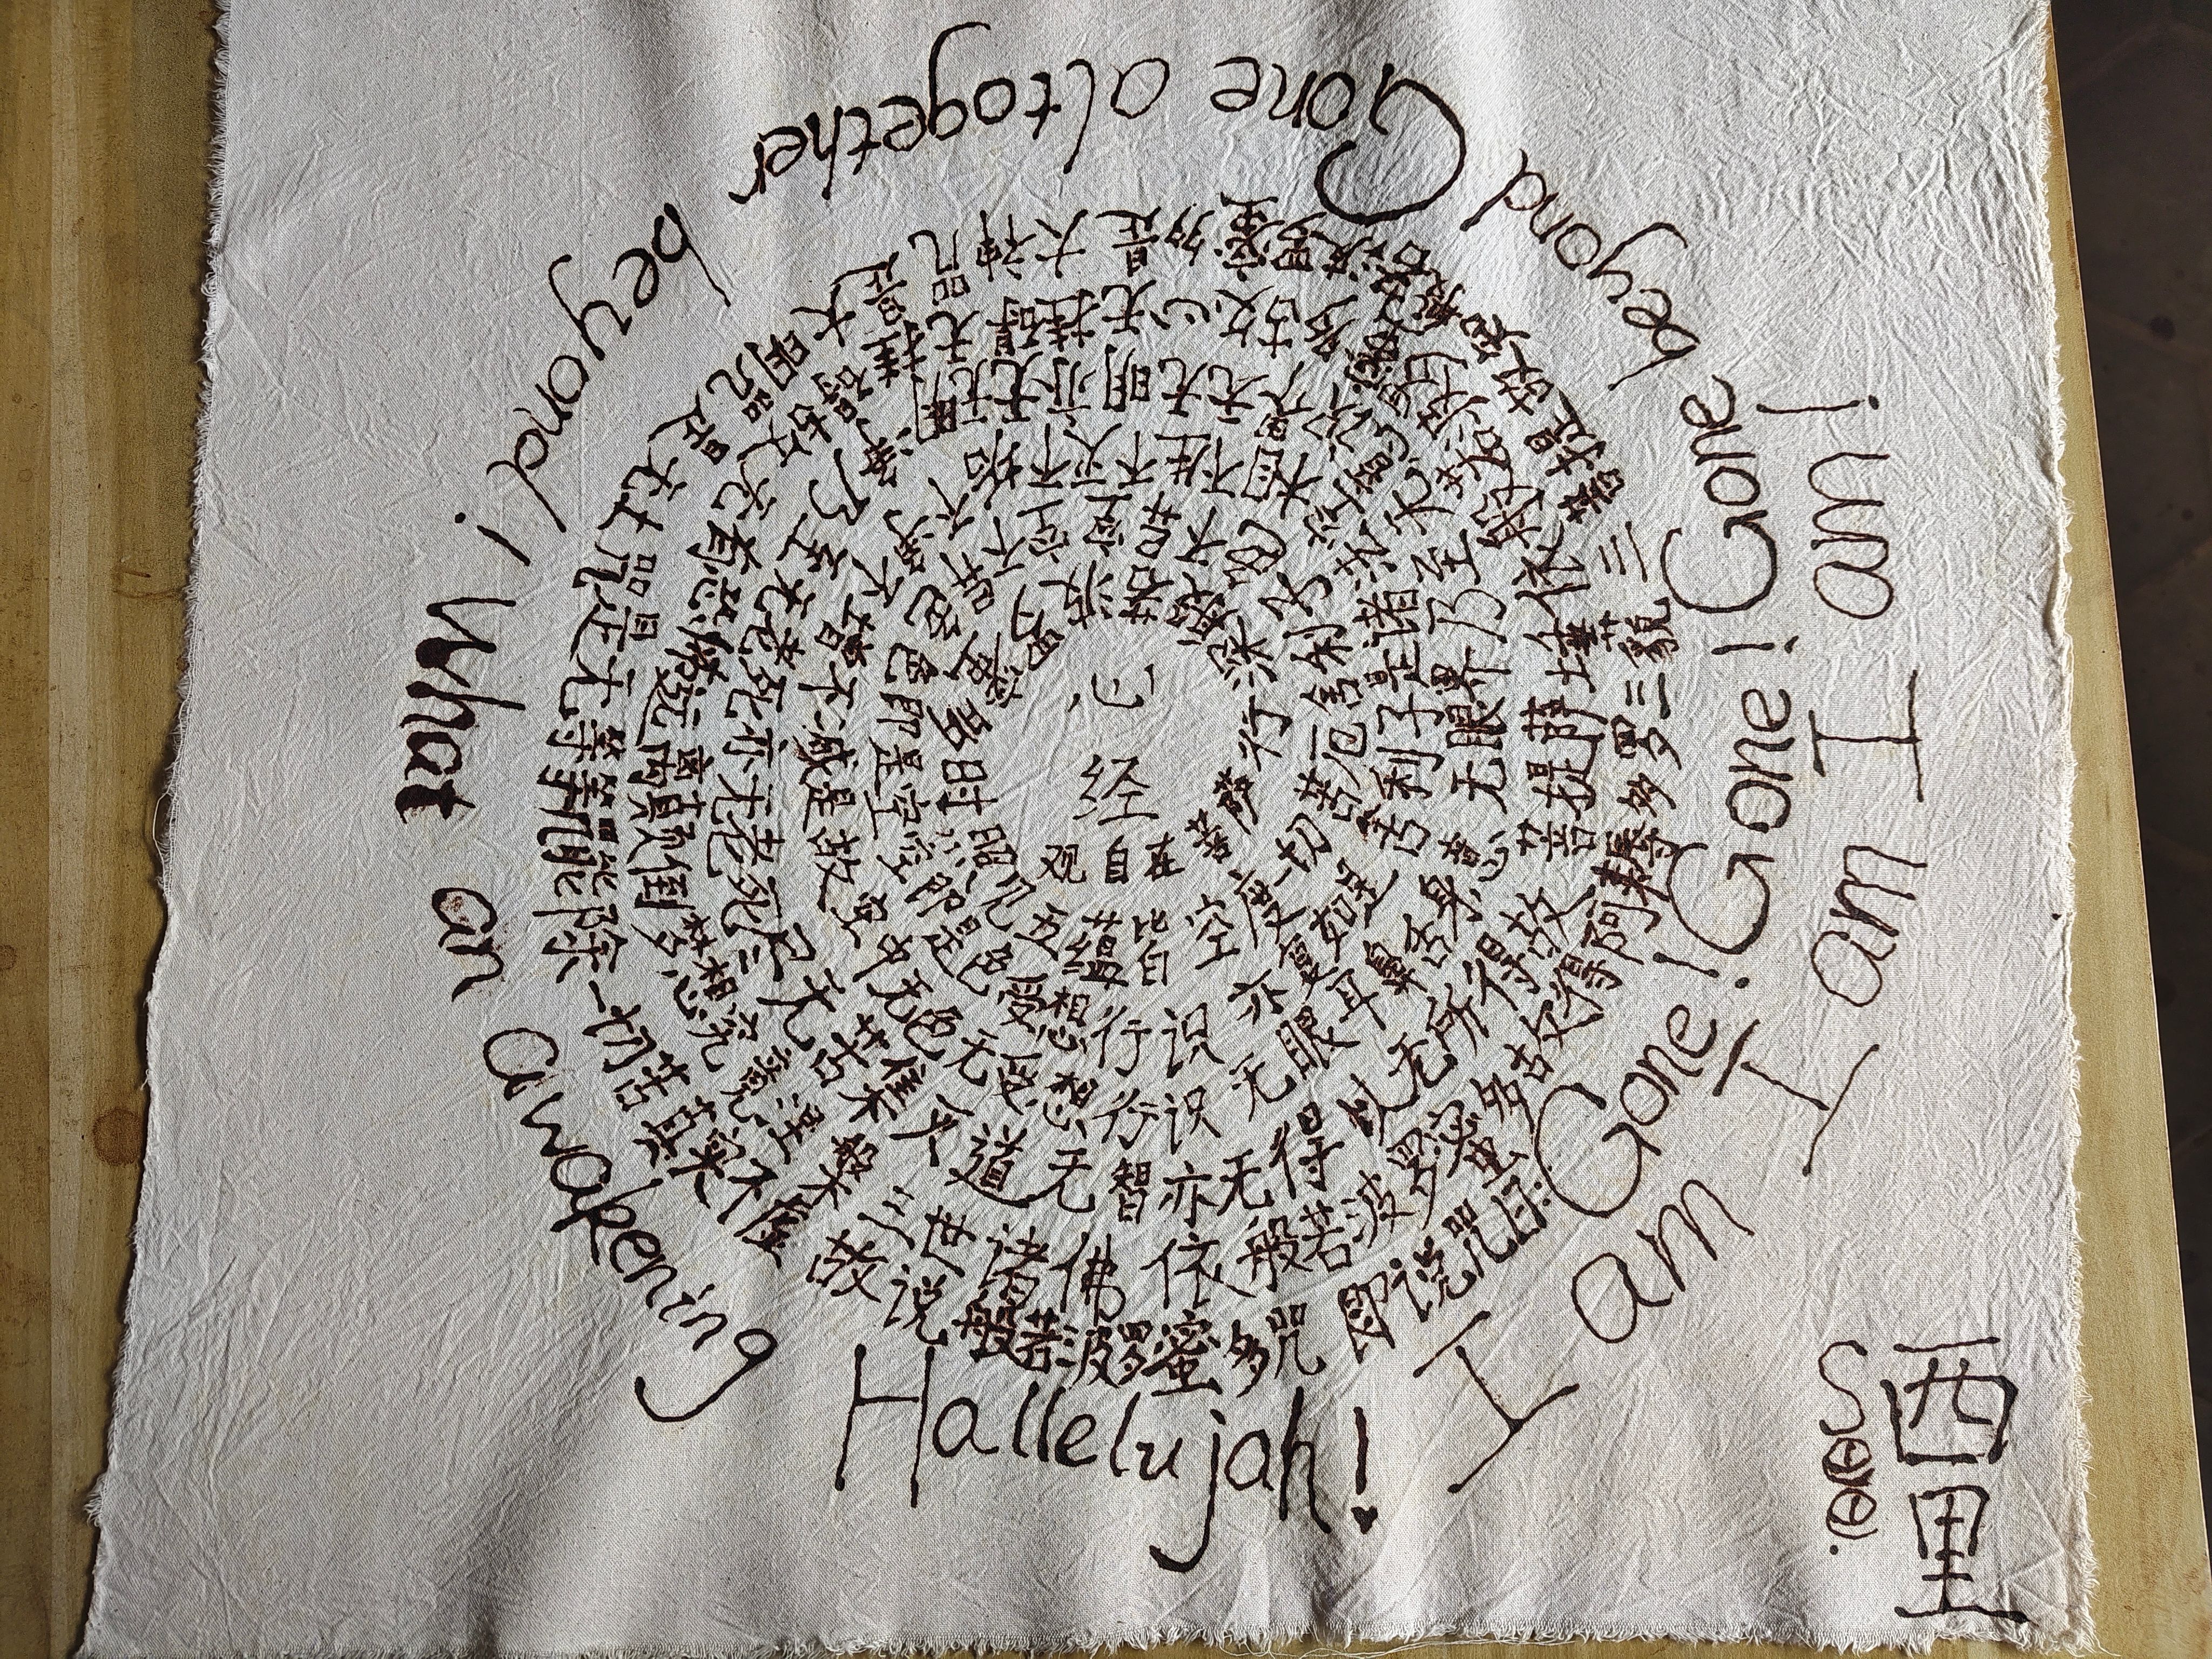 心
经
观自在菩萨行深般若波罗蜜多时照见五蕴皆空度一切苦厄舍利子色不异空空不异色色即是空空即是色受想行识亦复如是舍利子是诸法空相不生不灭不垢不净不增不减是故空中无色无受想行识无眼耳鼻舌身意无眼界乃至无意识界无无明亦无无明尽乃至无老死亦无老死尽无苦集灭道无智亦无得以无所得故菩提萨埵依般若波罗蜜多故心无挂碍无挂碍故无有恐怖远离颠倒梦想究竟涅槃三世诸佛依般若波罗蜜多故得阿耨多罗三藐三菩提故知般若波罗蜜多是大神咒是大明咒是无上咒是无等等咒能除一切苦真实不虚故说般若波罗蜜多咒即说咒曰:
Gone! Gone! Gone beyond Gone altogether beyond! What an awakening Hallelujah!
I am I am I am!
西里